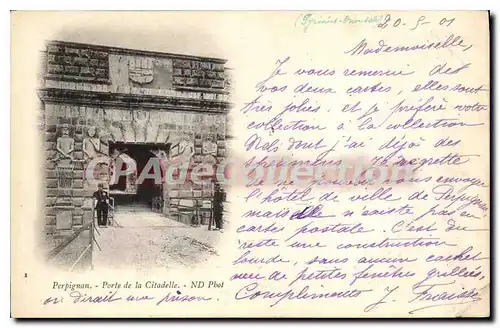 (Pyrénées-Orientales)
20-5-01
Mademoiselle,
Je vous remercie des
vos deux cartes, elles sont
très jolies. et je préfère votre
collection à la collection
Nels dont j'ai déjà des
spécimens. Je regrette
de ne pouvoir vous envoyer
l'hôtel de ville de Perpignan
mais elle n'existe pas en
carte postale. C'est du
reste une construction
lourde, sans aucun cachet
avec de petites fenêtres grillées.
on dirait une prison.
Compliments J. Fraisse
Perpignan. - Porte de la Citadelle. - ND Phot